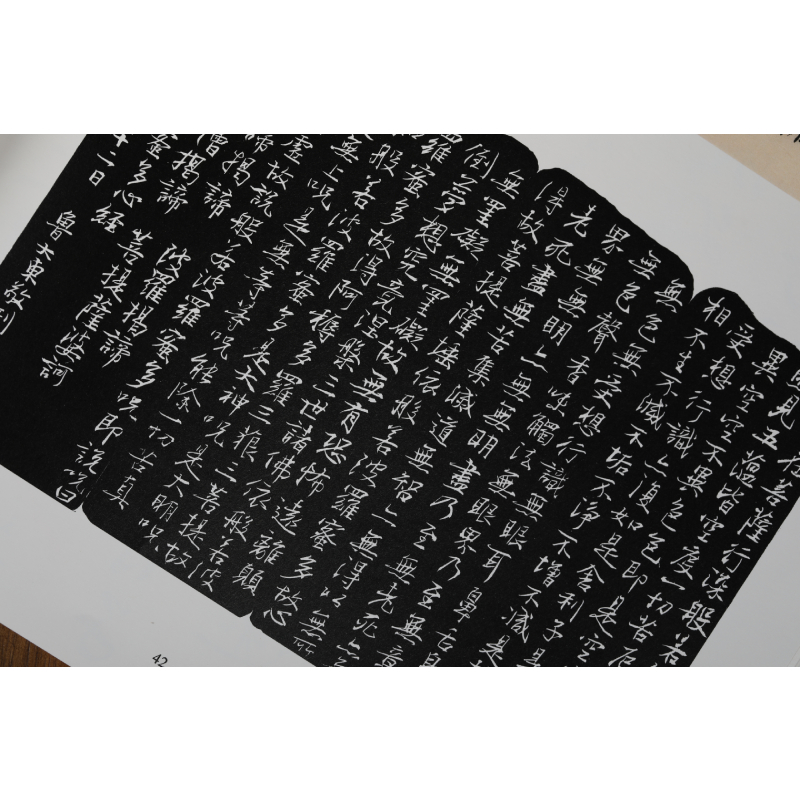 在菩薩行深般若
見五蘊皆空度一切苦厄
異空空不異色色即是空
受想行識亦復如是舍利子
相不生不滅不垢不淨不增不減是
無色無受想行識無眼耳鼻舌身
界無色聲香味觸法無眼界乃至無意
老死盡無苦集滅道無智亦無得以無
得故菩提薩埵依般若波羅蜜多故心
無罣礙無罣礙故無有恐怖遠離顛
倒夢想究竟涅槃三世諸佛依般若波
羅蜜多故得阿耨多羅三藐三菩提故
般若波羅蜜多是大神咒是大明咒
無上咒是無等等咒能除一切苦真
虛故說般若波羅蜜多咒即說咒曰
諦揭諦
波羅揭諦
僧揭諦
菩提薩婆訶
蜜多心經
十一日
魯大東敬刻
42